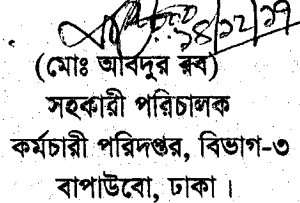 ১৪/১২/১৭
(মোঃ আবদুর রব)
সহকারী পরিচালক
কর্মচারী পরিদপ্তর, বিভাগ-৩
বাপাউবো, ঢাকা।